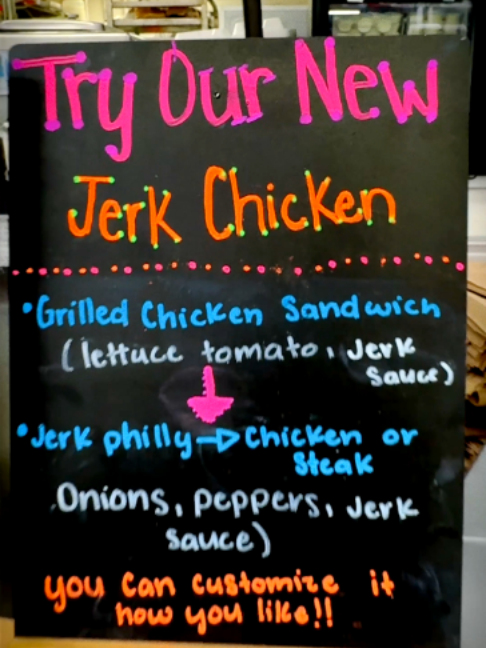 Try Our New
Jerk Chicken
•Grilled Chicken Sandwich
(lettuce tomato, Jerk
Sauce)
•Jerk philly→Chicken or
Steak
Onions, peppers, Jerk
sauce)
you can customize it
how you like!!